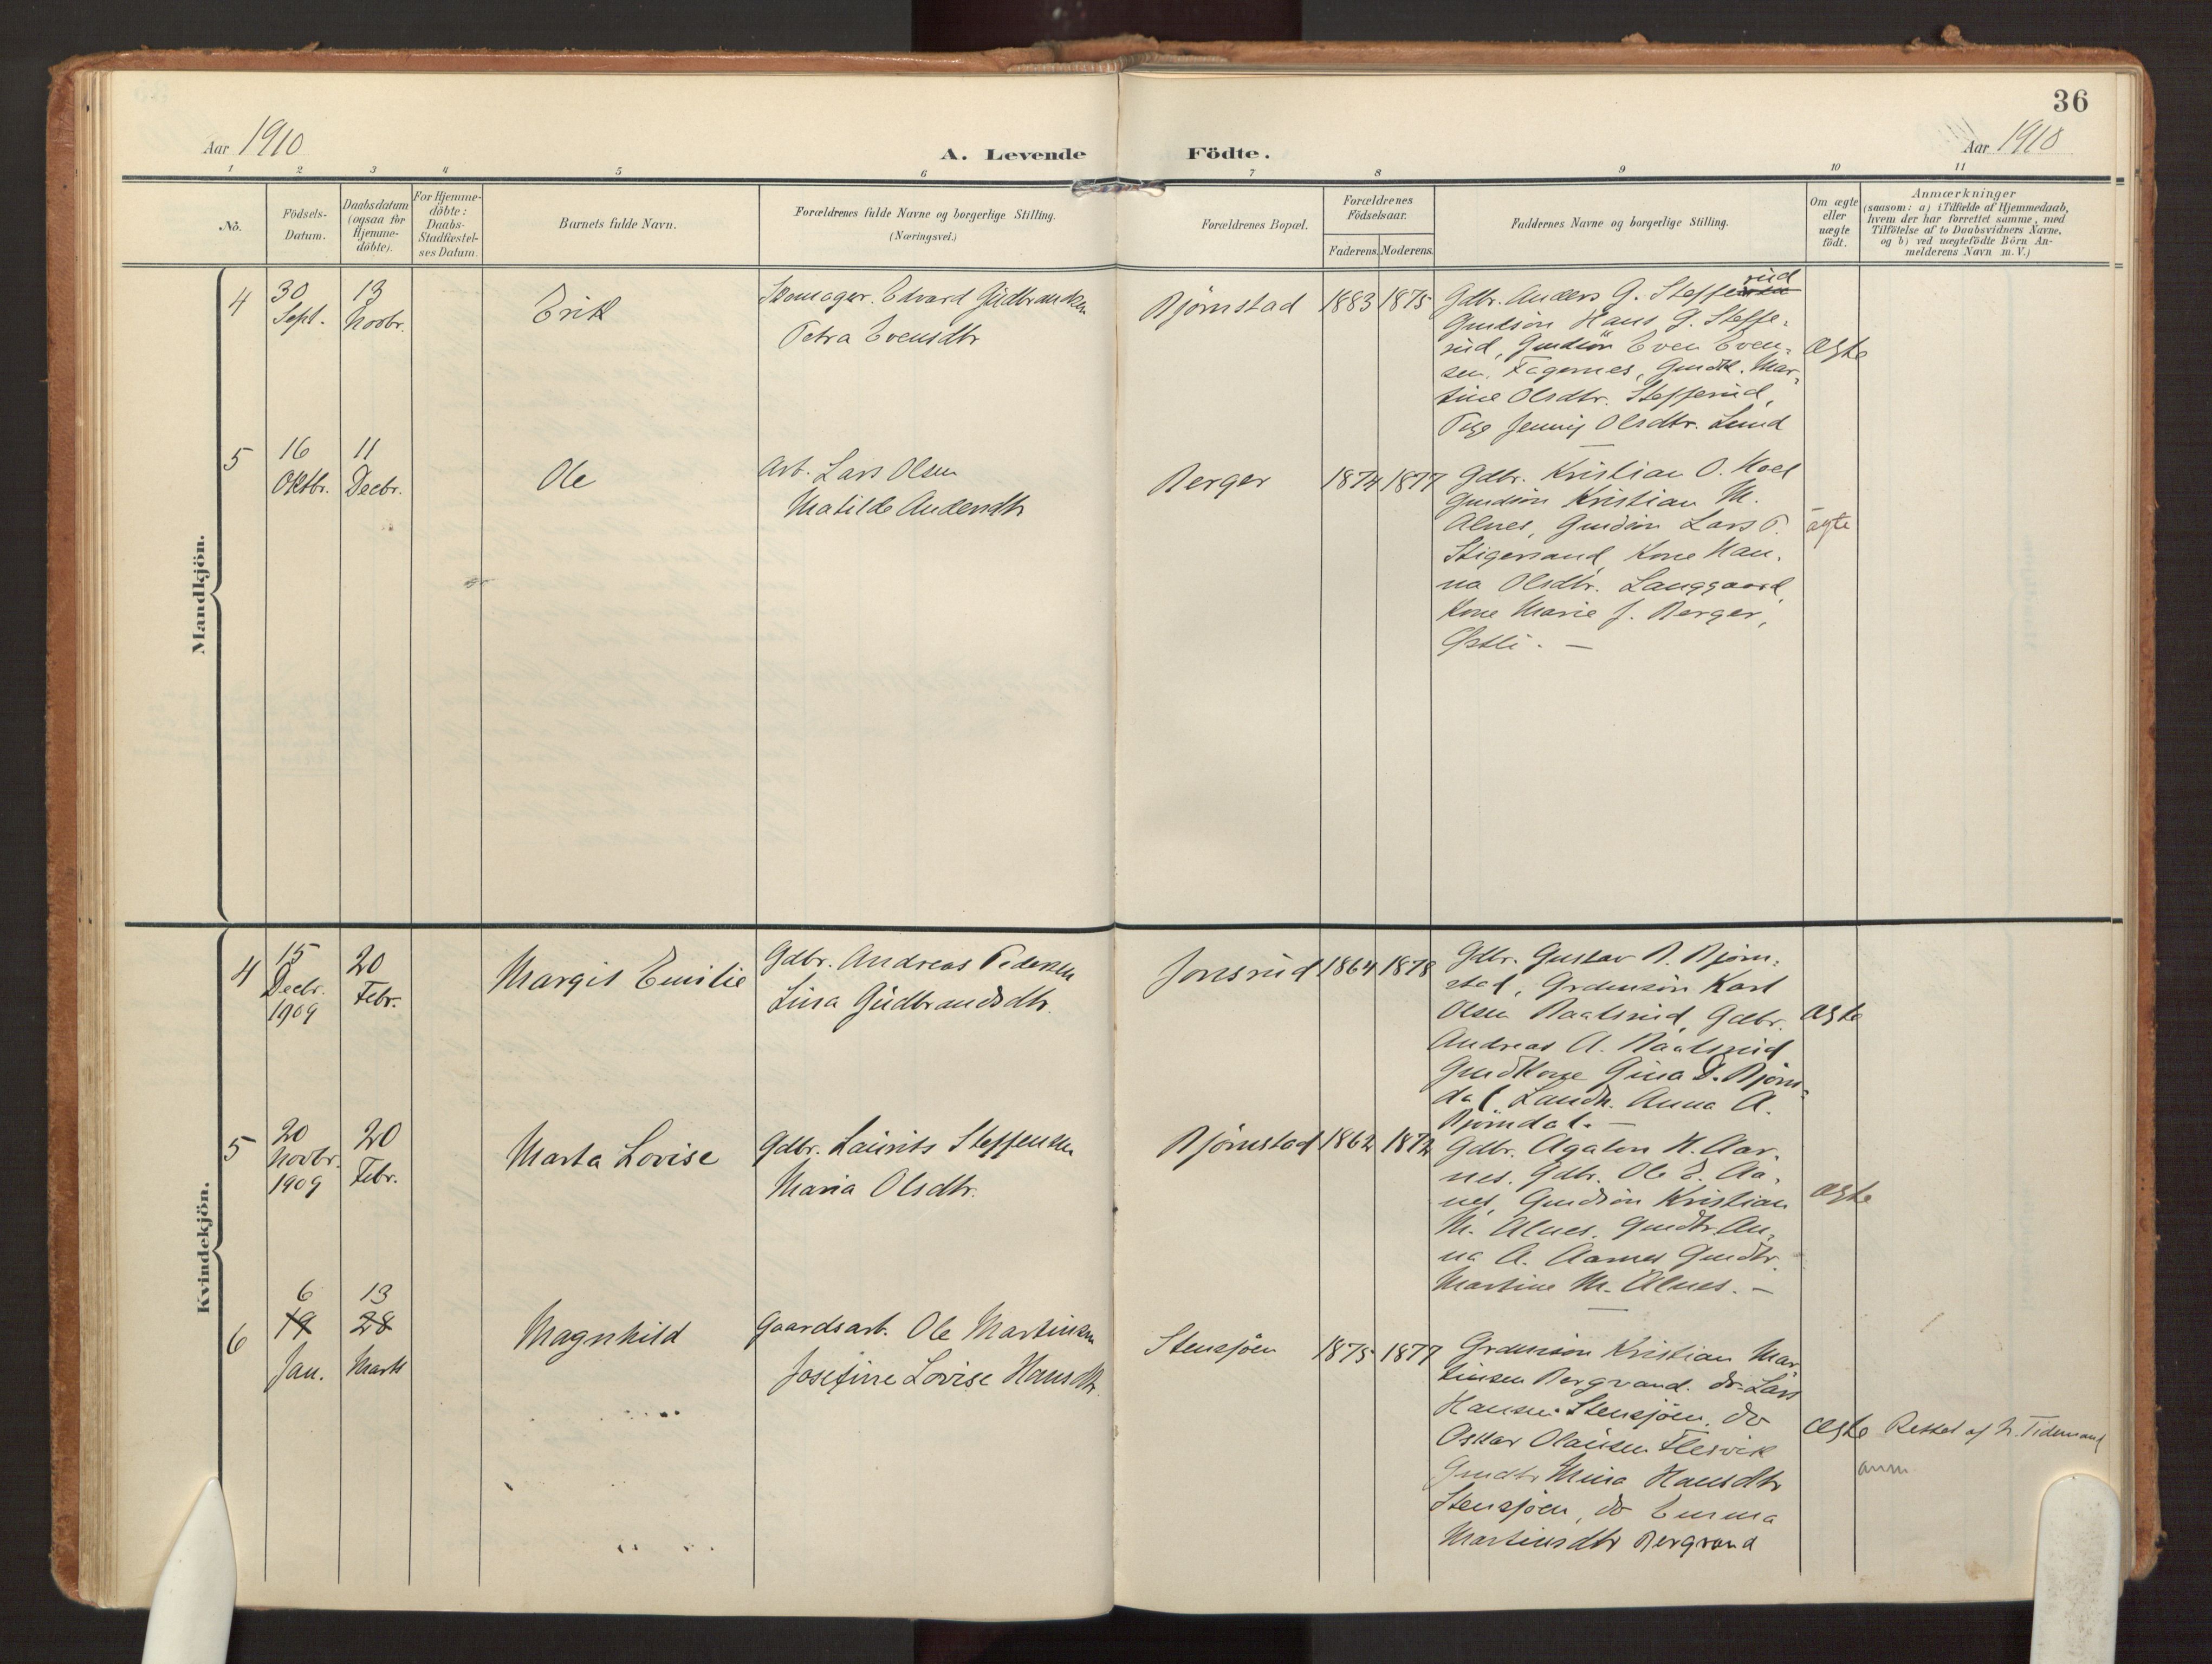 36
Aar 1910
A. Levende Födte.
Aar 1910
1 2 3 4 5 6 7 8 9 10 11
No.
Födsels-
Datum.
Daabsdatum
(ogsaa for
Hjemme-
döbte).
For Hjemme-
döbte:
Daabs-
Stadfæstel-
ses Datum.
Barnets fulde Navn.
Forældrenes fulde Navne og borgerlige Stilling.
(Næringsvei.)
Forældrenes Bopæl.
Forældrenes
Födselsaar.
Faderens. Moderens.
Faddernes Navne og borgerlige Stilling.
Om ægte
eller
uægte
födt.
Anmærkninger
(saasom: a) i Tilfælde af Hjemmedaab,
hvem der har forrettet samme, med
Tilföielse af to Daabsvidners Navne,
og b) ved uægtefödte Börn An-
melderens Navn m.V.)
Mandkjön.
4
30
Sept.
13
Novbr.
Erik
Skomager. Edvard Gudbrandsen
Petra Evensdtr
Bjørnstad
1883 1875
Gdbr. Anders G. Stefferud
Gmdsøn Hans G. Steffe-
rud, Gmdsøn Even Even-
sen. Fagernes, Gmdk. Mar-
tine Olsdtr. Stefferud,
Pige Jenny Olsdtr. Lund
ægte
5
16
Oktbr.
11
Decbr.
Ole
Arb. Lars Olsen
Matilde Andersdtr
Berger
1874 1877
Gdbr. Kristian O. Hoel
Gmdsøn Kristian M.
Alnes, Gmdsøn Lars P.
Stigersand, Kone Han-
na Olsdtr. Langgaard,
Kone Marie J. Berger,
Østli. —
ægte
Kvindekjön.
4
15
Decbr.
1909
20
Febr.
Margit Emilie
Gdbr. Andreas Pedersen
Lina Gudbrandsdtr.
Jonsrud
1864 1878
Gdbr. Gustav B. Bjørn-
stad, Grdmsøn Karl
Olsen Raalsrud, Gdbr.
Andreas A. Raalsrud
Gmdkone Gina D. Bjørn-
dal Landh. Anna A.
Bjørndal. —
ægte
5
20
Novbr.
1909
20
Febr.
Marta Lovise
Gdbr. Laurits Steffensen
Maria Olsdtr.
Bjørnstad
1862 1872
Gdbr. Agaton H. Aar-
nes. Gdbr. Ole E. Aa-
nes, Gmdsøn Kristian
M. Alnes. Gmdtr. An-
na A. Aarnes Gmdtr.
Martine M. Alnes. —
ægte
6
6
19
Jan.
13
28
Marts
Magnhild
Gaardsarb. Ole Martinsen
Josefine Lovise Hansdtr.
Stensjøen
1875 1877
Grdmsøn Kristian Mar
tinsen Bergvand. do Lars
Hansen Stensjøen, do
Oskar Olausen Flesvik
Gmdtr Mina Hansdtr
Stensjøen, do Emma
Martinsdtr Bergvand
ægte
Rettet af N. Tidemand
anm.